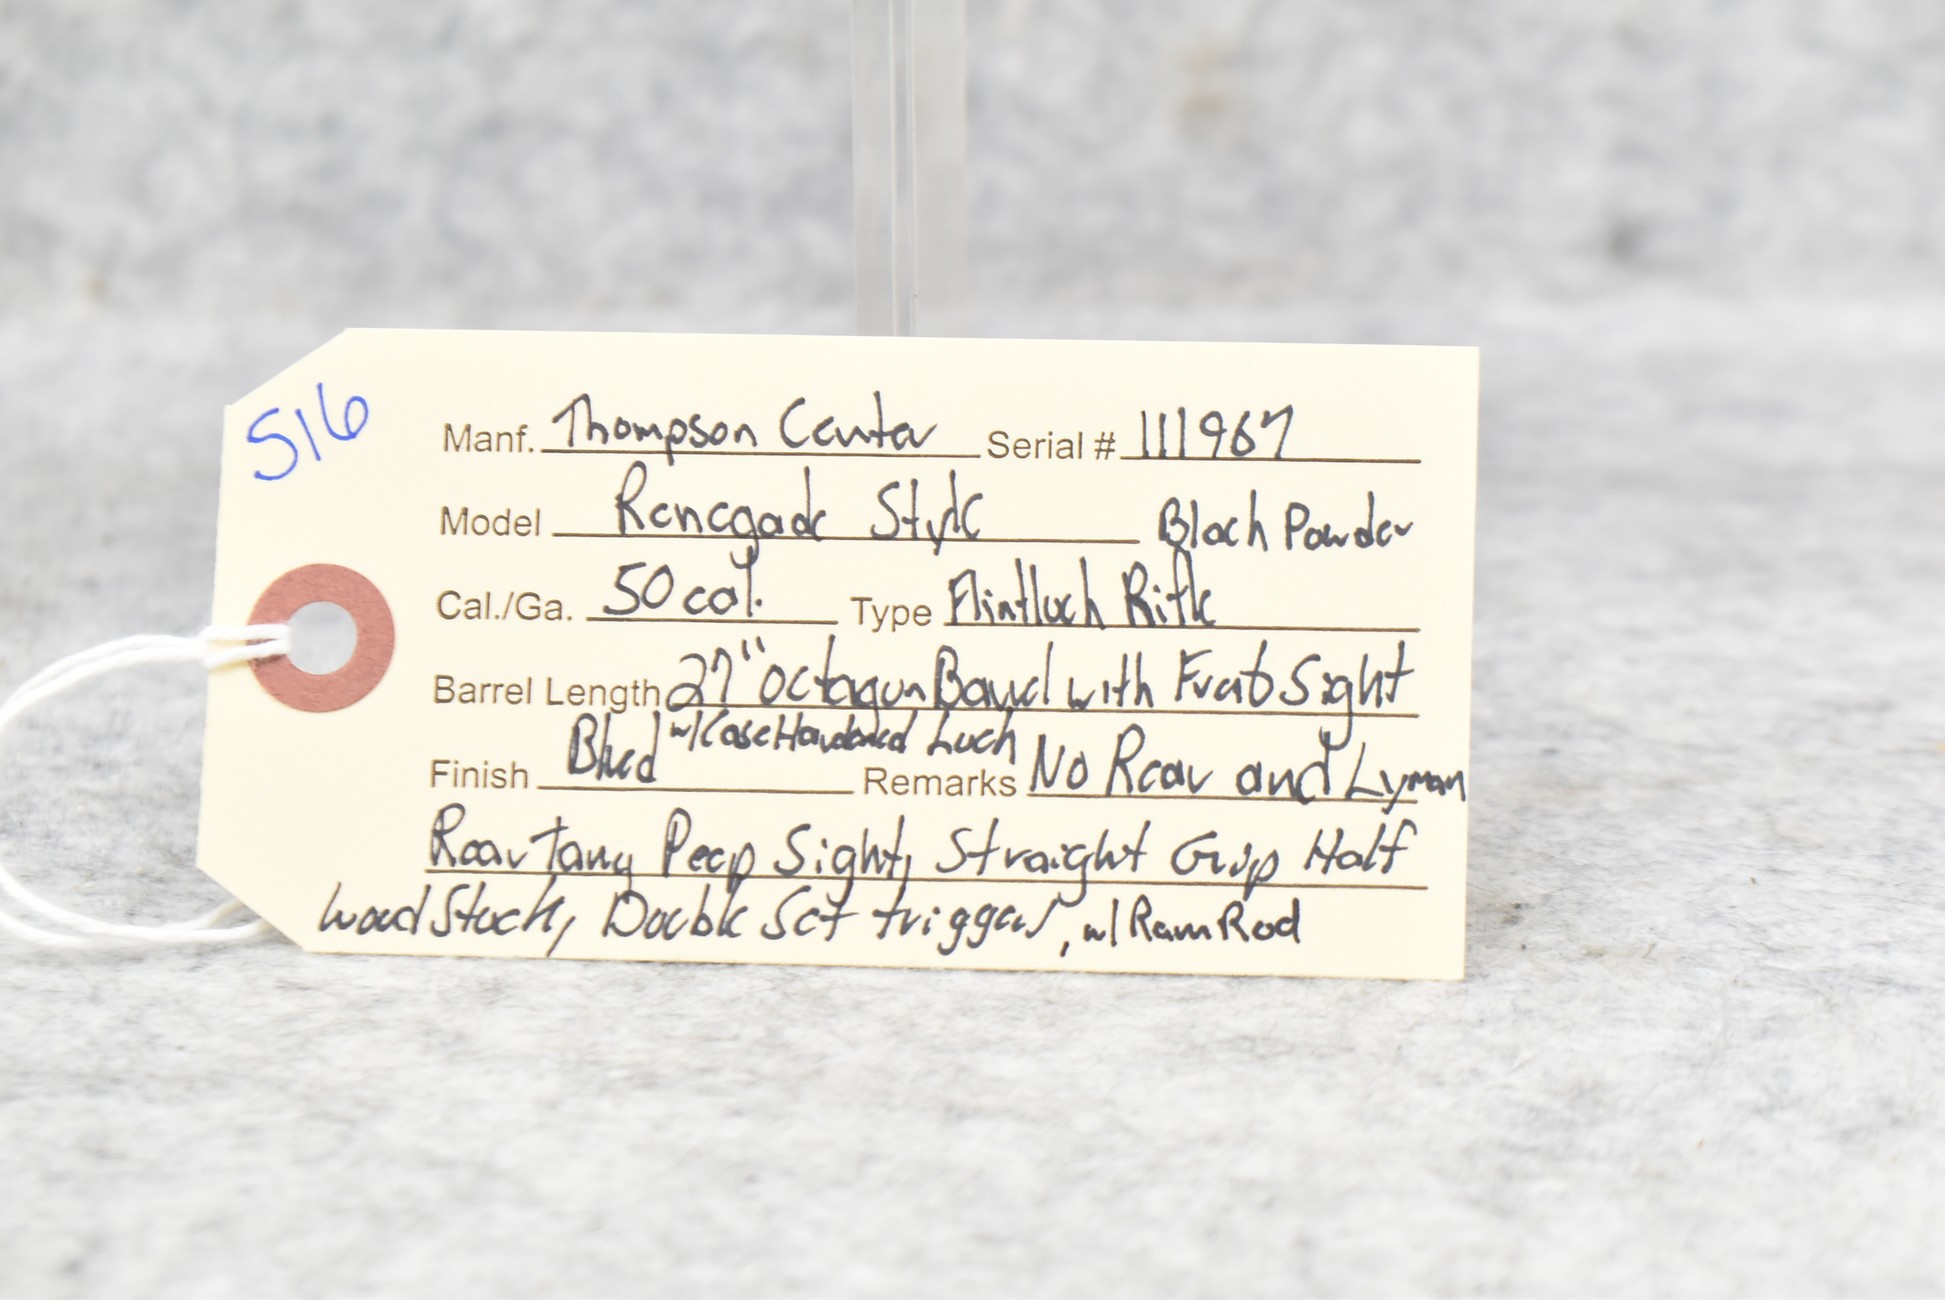 516
Manf. Thompson Center Serial # 111967
Model Renegade Style Black Powder
Cal./Ga. 50 cal. Type Flintlock Rifle
Barrel Length 27" Octagon Barrel with Front Sight
Finish Blued w/ Case Hardened Lock Remarks No Rear and Lyman
Rear Tang Peep Sight, Straight Grip Half
Wood Stock, Double Set triggers, w/ Ram Rod